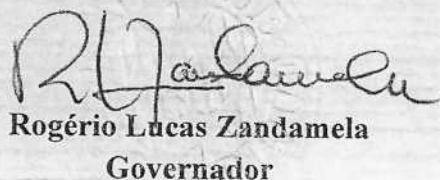 Rogério Lucas Zandamela
Governador